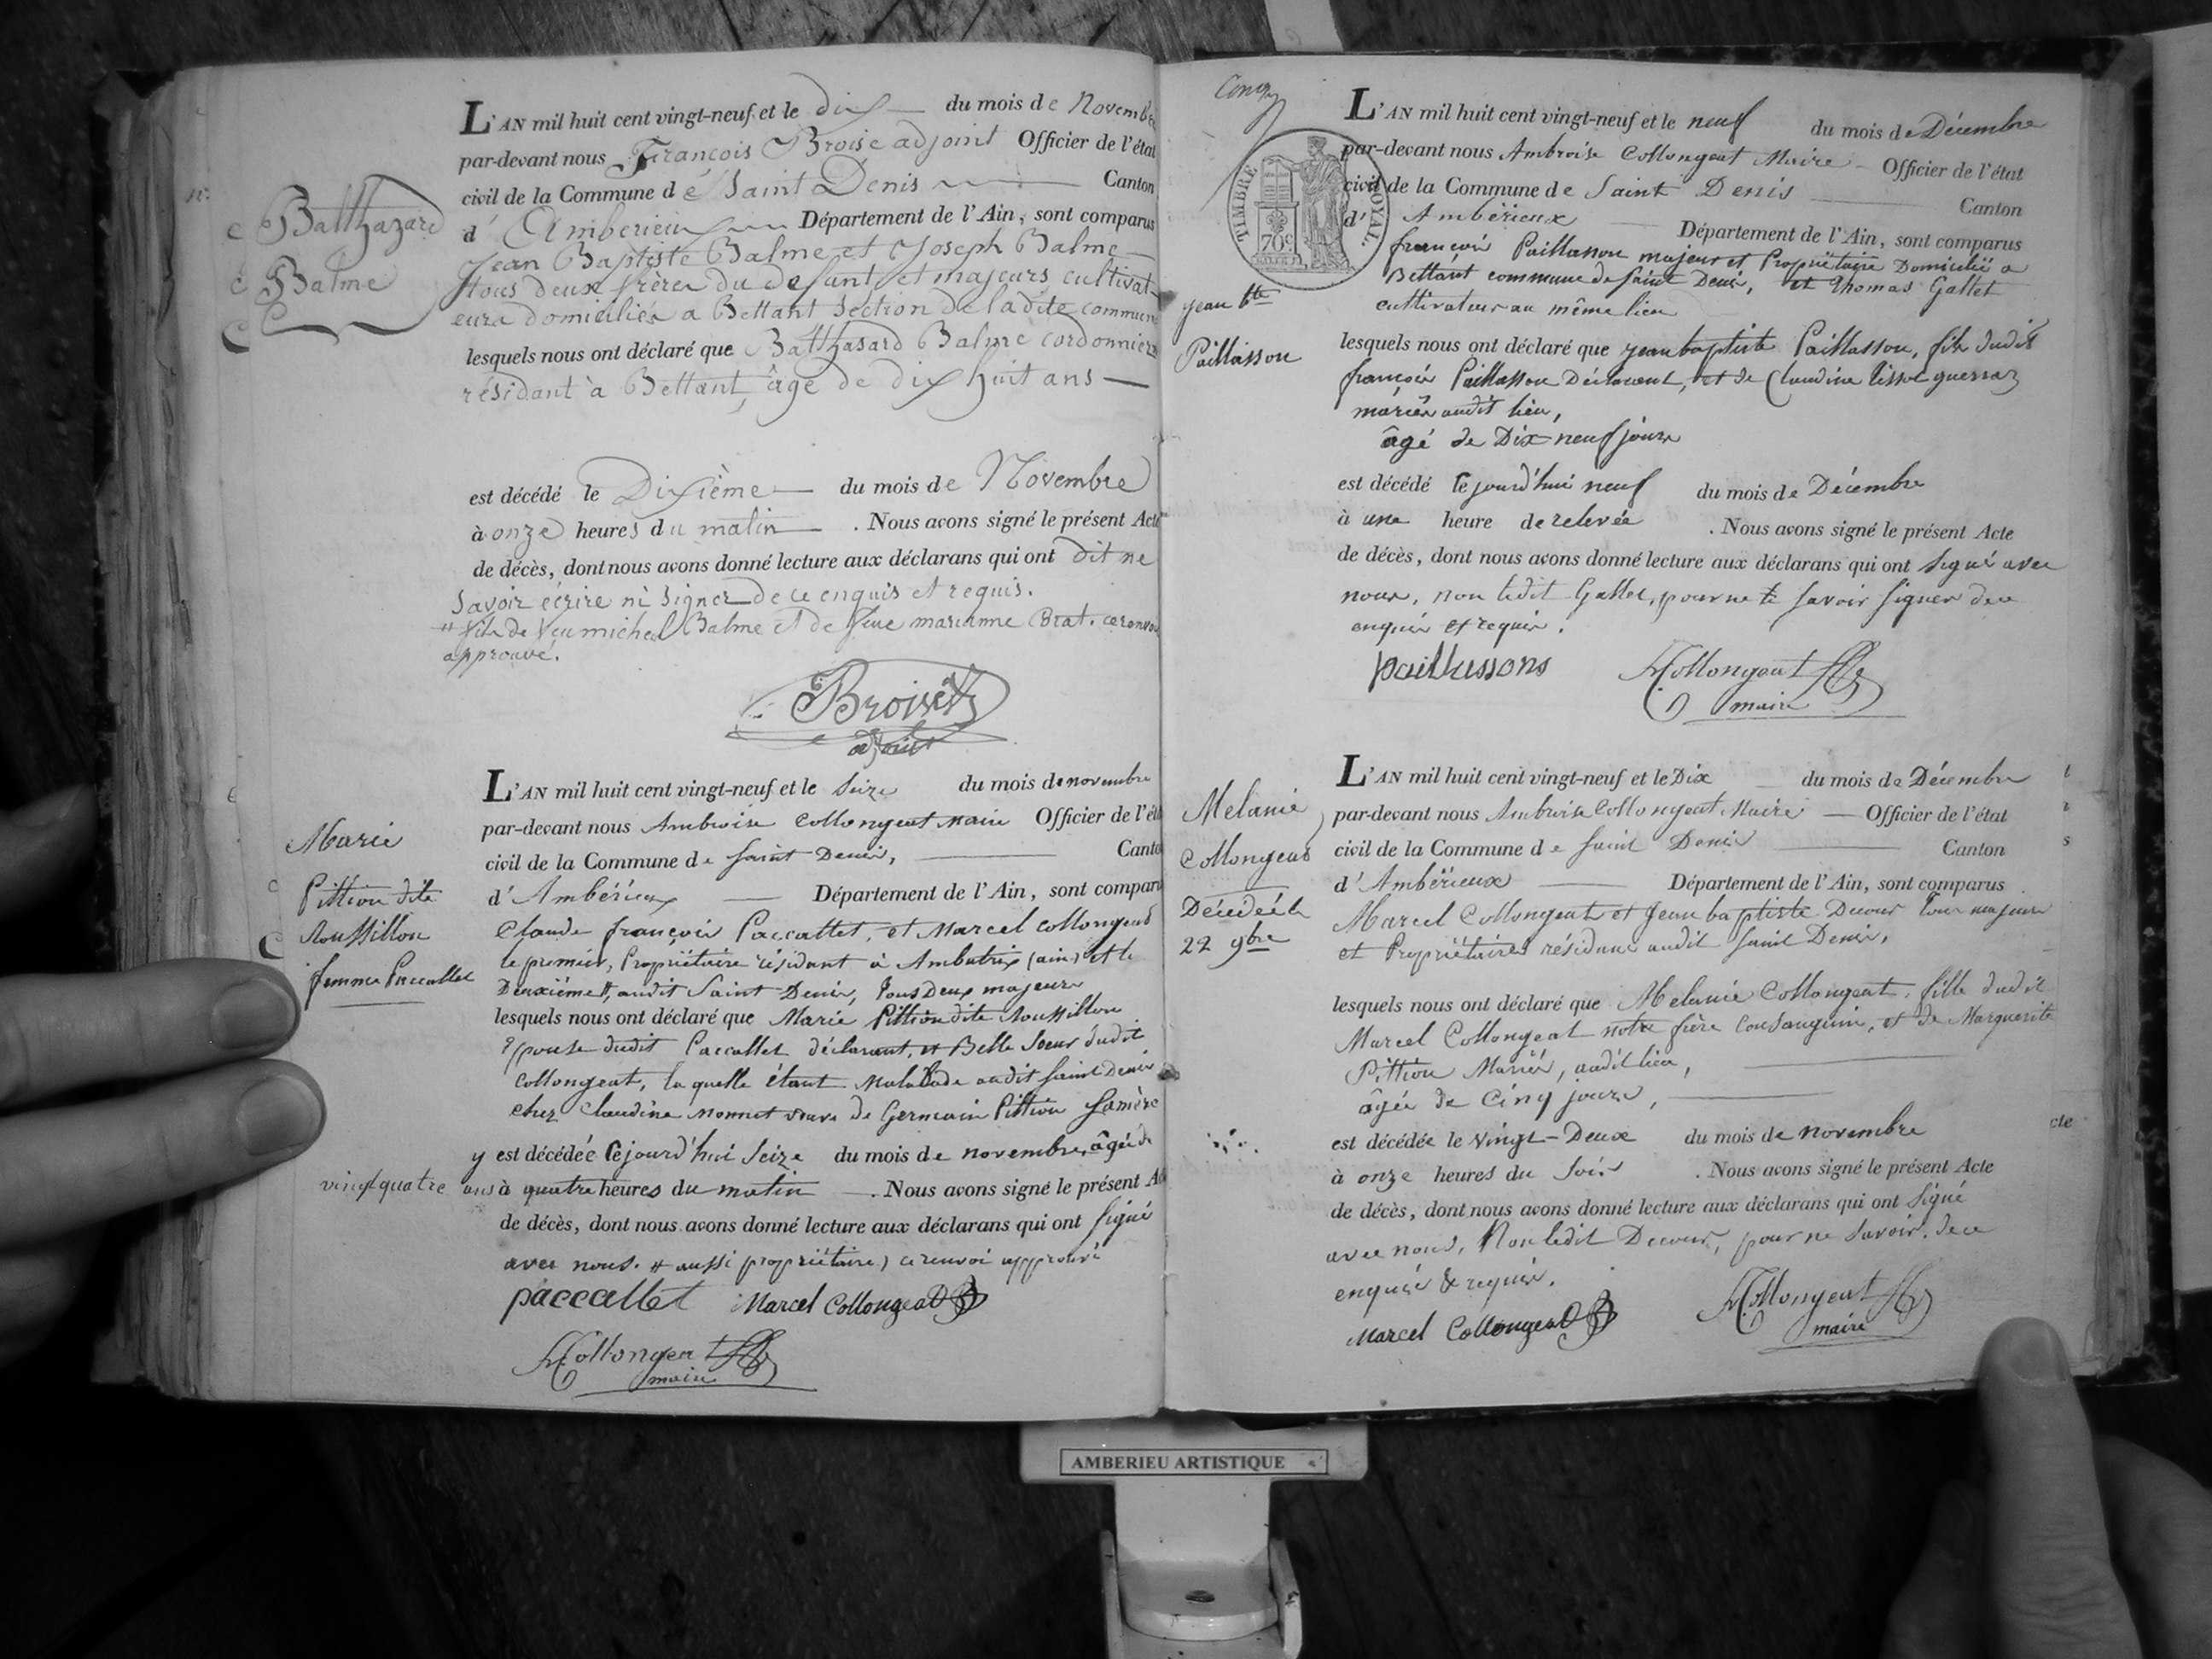 L'AN mil huit cent vingt-neuf et le dix du mois de Novembre
par-devant nous François Broise adjoint Officier de l'état
civil de la Commune de Saint Denis Canton
d'Amberieux Département de l'Ain, sont comparus
Jean Baptiste Balme et Joseph Balme
tous deux frères du defunt et majeurs cultivat-
eurs domiciliés a Bettant Section de ladite commune
Balthazard
Balme
lesquels nous ont déclaré que Balthasard Balme cordonnier
résidant à Bettant, âgé de dix huit ans
est décédé le Dixième du mois de Novembre
à onze heures du matin . Nous avons signé le présent Acte
de décès, dont nous avons donné lecture aux déclarans qui ont dit ne
Savoir écrire ni Signer de ce enquis et requis.
# fils de feu michel Balme et de feue marianne Brat. ce renvoi
approuvé.
Broise
adjoint
L'AN mil huit cent vingt-neuf et le Seize du mois de novembre
par-devant nous Ambroise Collongeat Maire Officier de l'état
civil de la Commune de Saint Denis, Canton
d'Ambérieux Département de l'Ain, sont comparu
Marie
Pittion dite
Roussillon
femme Paccallet
Claude françois Paccallet, et Marcel Collongeat
le premier, Propriétaire résidant à Ambutrix (ain) et le
Deuxième #, audit Saint Denis, tous Deux majeurs
lesquels nous ont déclaré que Marie Pittion dite Roussillon
Epouse dudit Paccallet déclarant, et Belle Soeur dudit
Collongeat, la quelle étant Malade audit Saint Denis
chez Claudine Monnet veuve de Germain Pittion Sa mère
y est décédée cejourd'hui Seize du mois de novembre, âgée de
vingt quatre ans à quatre heures du matin . Nous avons signé le présent Acte
de décès, dont nous avons donné lecture aux déclarans qui ont signé
avec nous. # aussi propriétaire) ce renvoi approuvé
paccallet Marcel Collongeat
A. Collongeat
maire
Cinq
TIMBRE ROYAL.
70c
L'AN mil huit cent vingt-neuf et le neuf du mois de Décembre
par-devant nous Ambroise Collongeat Maire Officier de l'état
civil de la Commune de Saint Denis Canton
d'Ambérieux Département de l'Ain, sont comparus
françois Paillasson majeur et Propriétaire Domicilié a
Bettant commune de Saint Denis, et Thomas Gallet
cultivateur au même lieu
jean bte
Paillasson
lesquels nous ont déclaré que jean baptiste Paillasson, fils dudit
françois Paillasson Déclarant, et de Claudine Tissot guerraz
mariés audit lieu,
âgé de Dix-neuf jours
est décédé cejourd'hui neuf du mois de Décembre
à une heure de relevée . Nous avons signé le présent Acte
de décès, dont nous avons donné lecture aux déclarans qui ont signé avec
nous, non ledit Gallet, pour ne le savoir signer de ce
enquis et requis.
paillassons A. Collongeat
maire
L'AN mil huit cent vingt-neuf et le Dix du mois de Décembre
par-devant nous Ambroise Collongeat Maire Officier de l'état
civil de la Commune de Saint Denis Canton
d'Ambérieux Département de l'Ain, sont comparus
Melanie
Collongeat
Décédée le
22 9bre
Marcel Collongeat et Jean baptiste Decour Tous majeurs
et Propriétaires résidans audit Saint Denis,
lesquels nous ont déclaré que Melanie Collongeat, fille dudit
Marcel Collongeat notre frère Consanguin, et de Marguerite
Pittion Mariés, audit lieu,
âgée de Cinq jours,
est décédée le vingt-Deux du mois de novembre
à onze heures du Soir . Nous avons signé le présent Acte
de décès, dont nous avons donné lecture aux déclarans qui ont signé
avec nous, Non ledit Decour, pour ne savoir. de ce
enquis & requis.
Marcel Collongeat A. Collongeat
maire
cte
AMBERIEU ARTISTIQUE